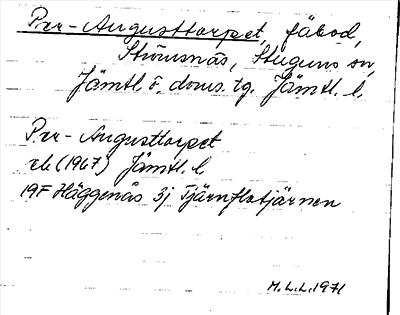 Per-Augusttorpet, fäbod,
Strömsnäs, Stuguns sn,
Jämtl ö. doms. tg. Jämtl. l.
Per-Augusttorpet
rk (1967) Jämtl. l
19F Häggenås 3j Tjärnflotjärnen
M.L.L. 1971